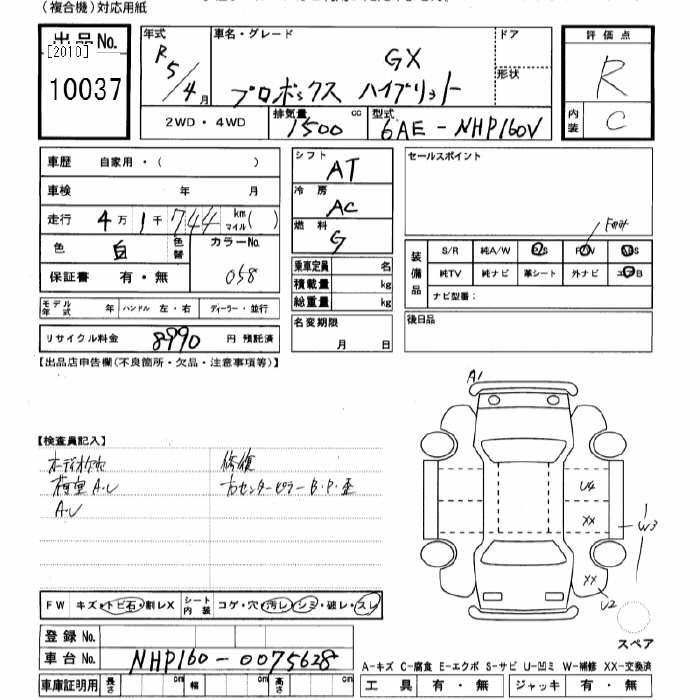 (複合機)対応用紙
出品No.
[2010]
10037
年式
R5/4月
車名・グレード
GX
プロボックス ハイブリット
ドア
形状
評価点
R
内装
C
2WD・4WD
排気量
1500 cc
型式
6AE-NHP160V
車歴 自家用・( )
車検 年 月
走行 4万1千744 km マイル( )
色 白 色替
カラーNo.
058
保証書 有・無
モデル年式 年 ハンドル 左・右 ディーラー・並行
リサイクル料金 8990 円 預託済
シフト
AT
冷房
AC
燃料
G
乗車定員 名
積載量 kg
総重量 kg
名変期限
月 日
セールスポイント
装備品
S/R 純A/W P/S P/W
純TV 純ナビ 革シート 外ナビ エアB
ナビ型番:
後日品
【出品店申告欄(不良箇所・欠品・注意事項等)】
【検査員記入】
修復
A・U
右センターピラーB・P・歪
A・U
FW キズ・トビ石・割レX シート内装 コゲ・穴・汚レ・シミ・破レ・スレ
登録No.
車台No. NHP160-0075628
車庫証明用 長さ cm 幅 cm 高さ cm
A1
U4
XX
W3
XX
U2
スペア
A-キズ C-腐食 E-エクボ S-サビ U-凹ミ W-補修 XX-交換済
工具 有・無 ジャッキ 有・無